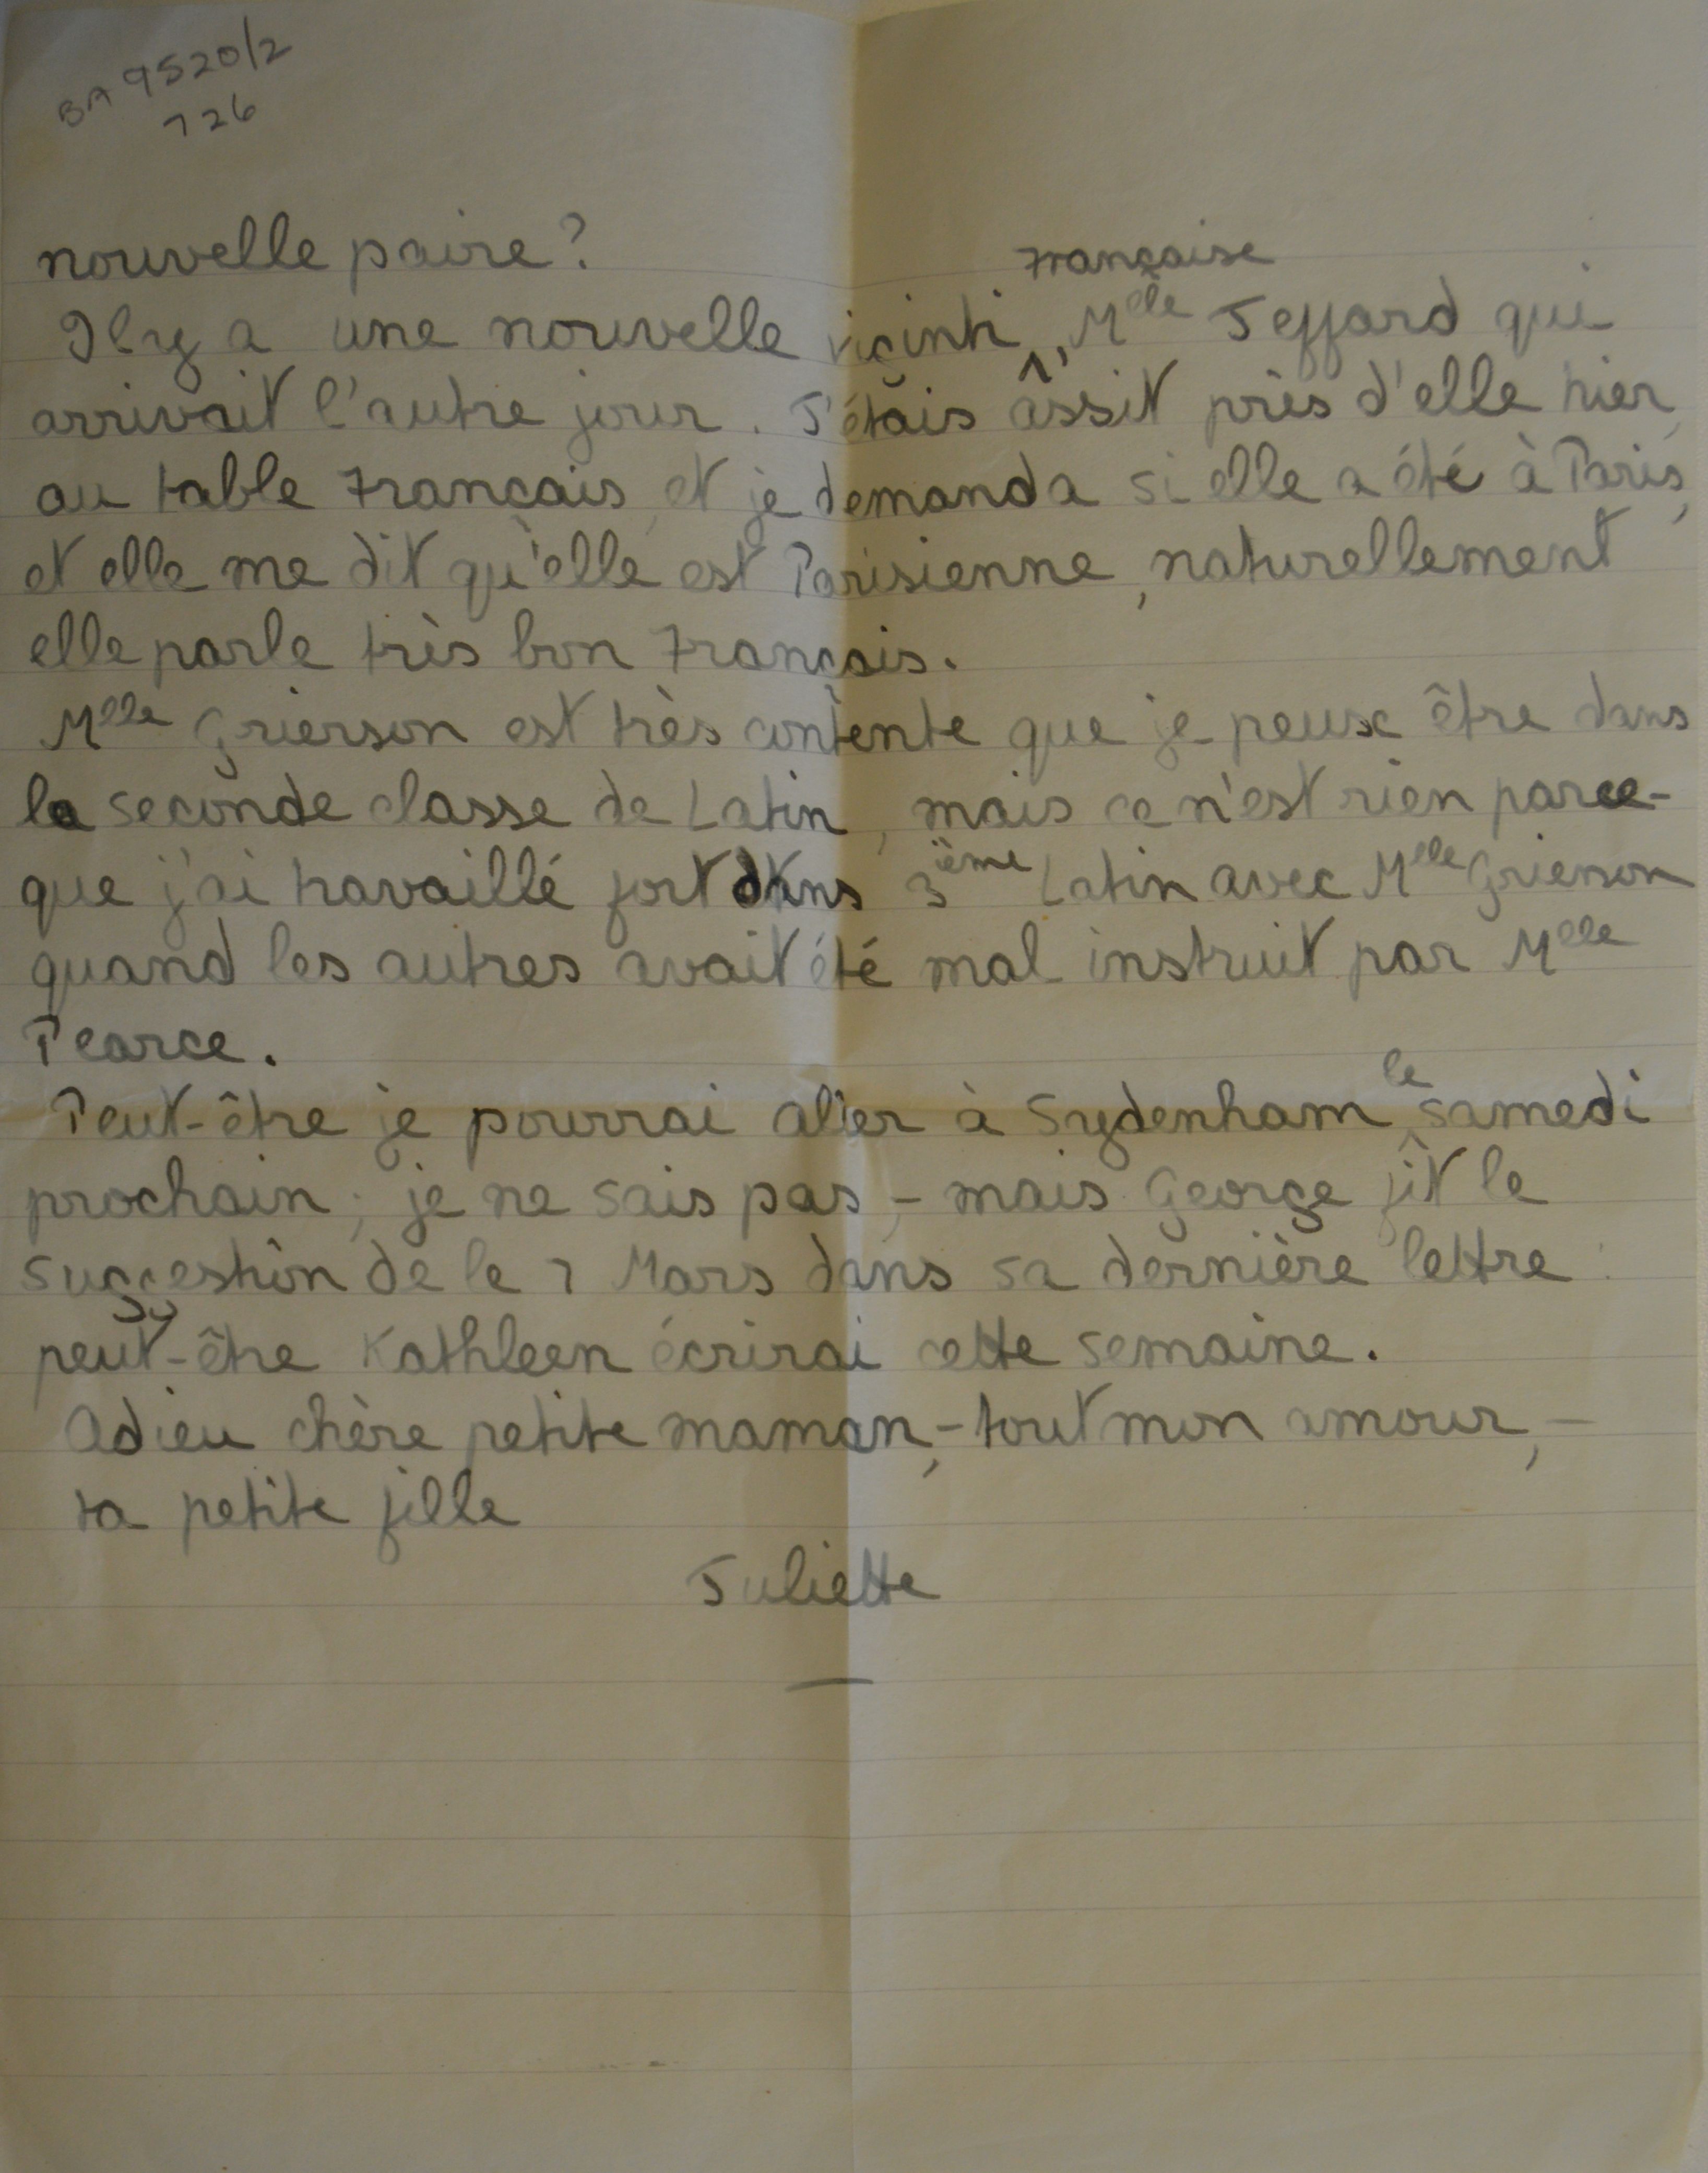 BA 9520/2
726
nouvelle paire?
Française
Il y a une nouvelle viginti ^, Mlle Jeffard qui
arrivait l'autre jour. J'étais assit près d'elle hier,
au table Français, et je demanda si elle a été à Paris,
et elle me dit qu'elle est Parisienne, naturellement
elle parle très bon Français.
Mlle Grierson est très contente que je peux être dans
la seconde classe de Latin, mais ce n'est rien parce-
que j'ai travaillé fort dans 3ième Latin avec Mlle Grierson
quand les autres avait été mal instruit par Mlle
Pearce.
le
Peut-être je pourrai aller à Sydenham samedi
prochain; je ne sais pas, - mais George fît le
suggestion de le 7 Mars dans sa dernière lettre:
peut-être Kathleen écrirai cette semaine.
Adieu chère petite maman, - tout mon amour, -
ta petite fille
Juliette